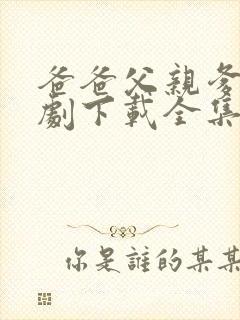 爸爸父親爹
劇下載全集
你是誰的某某